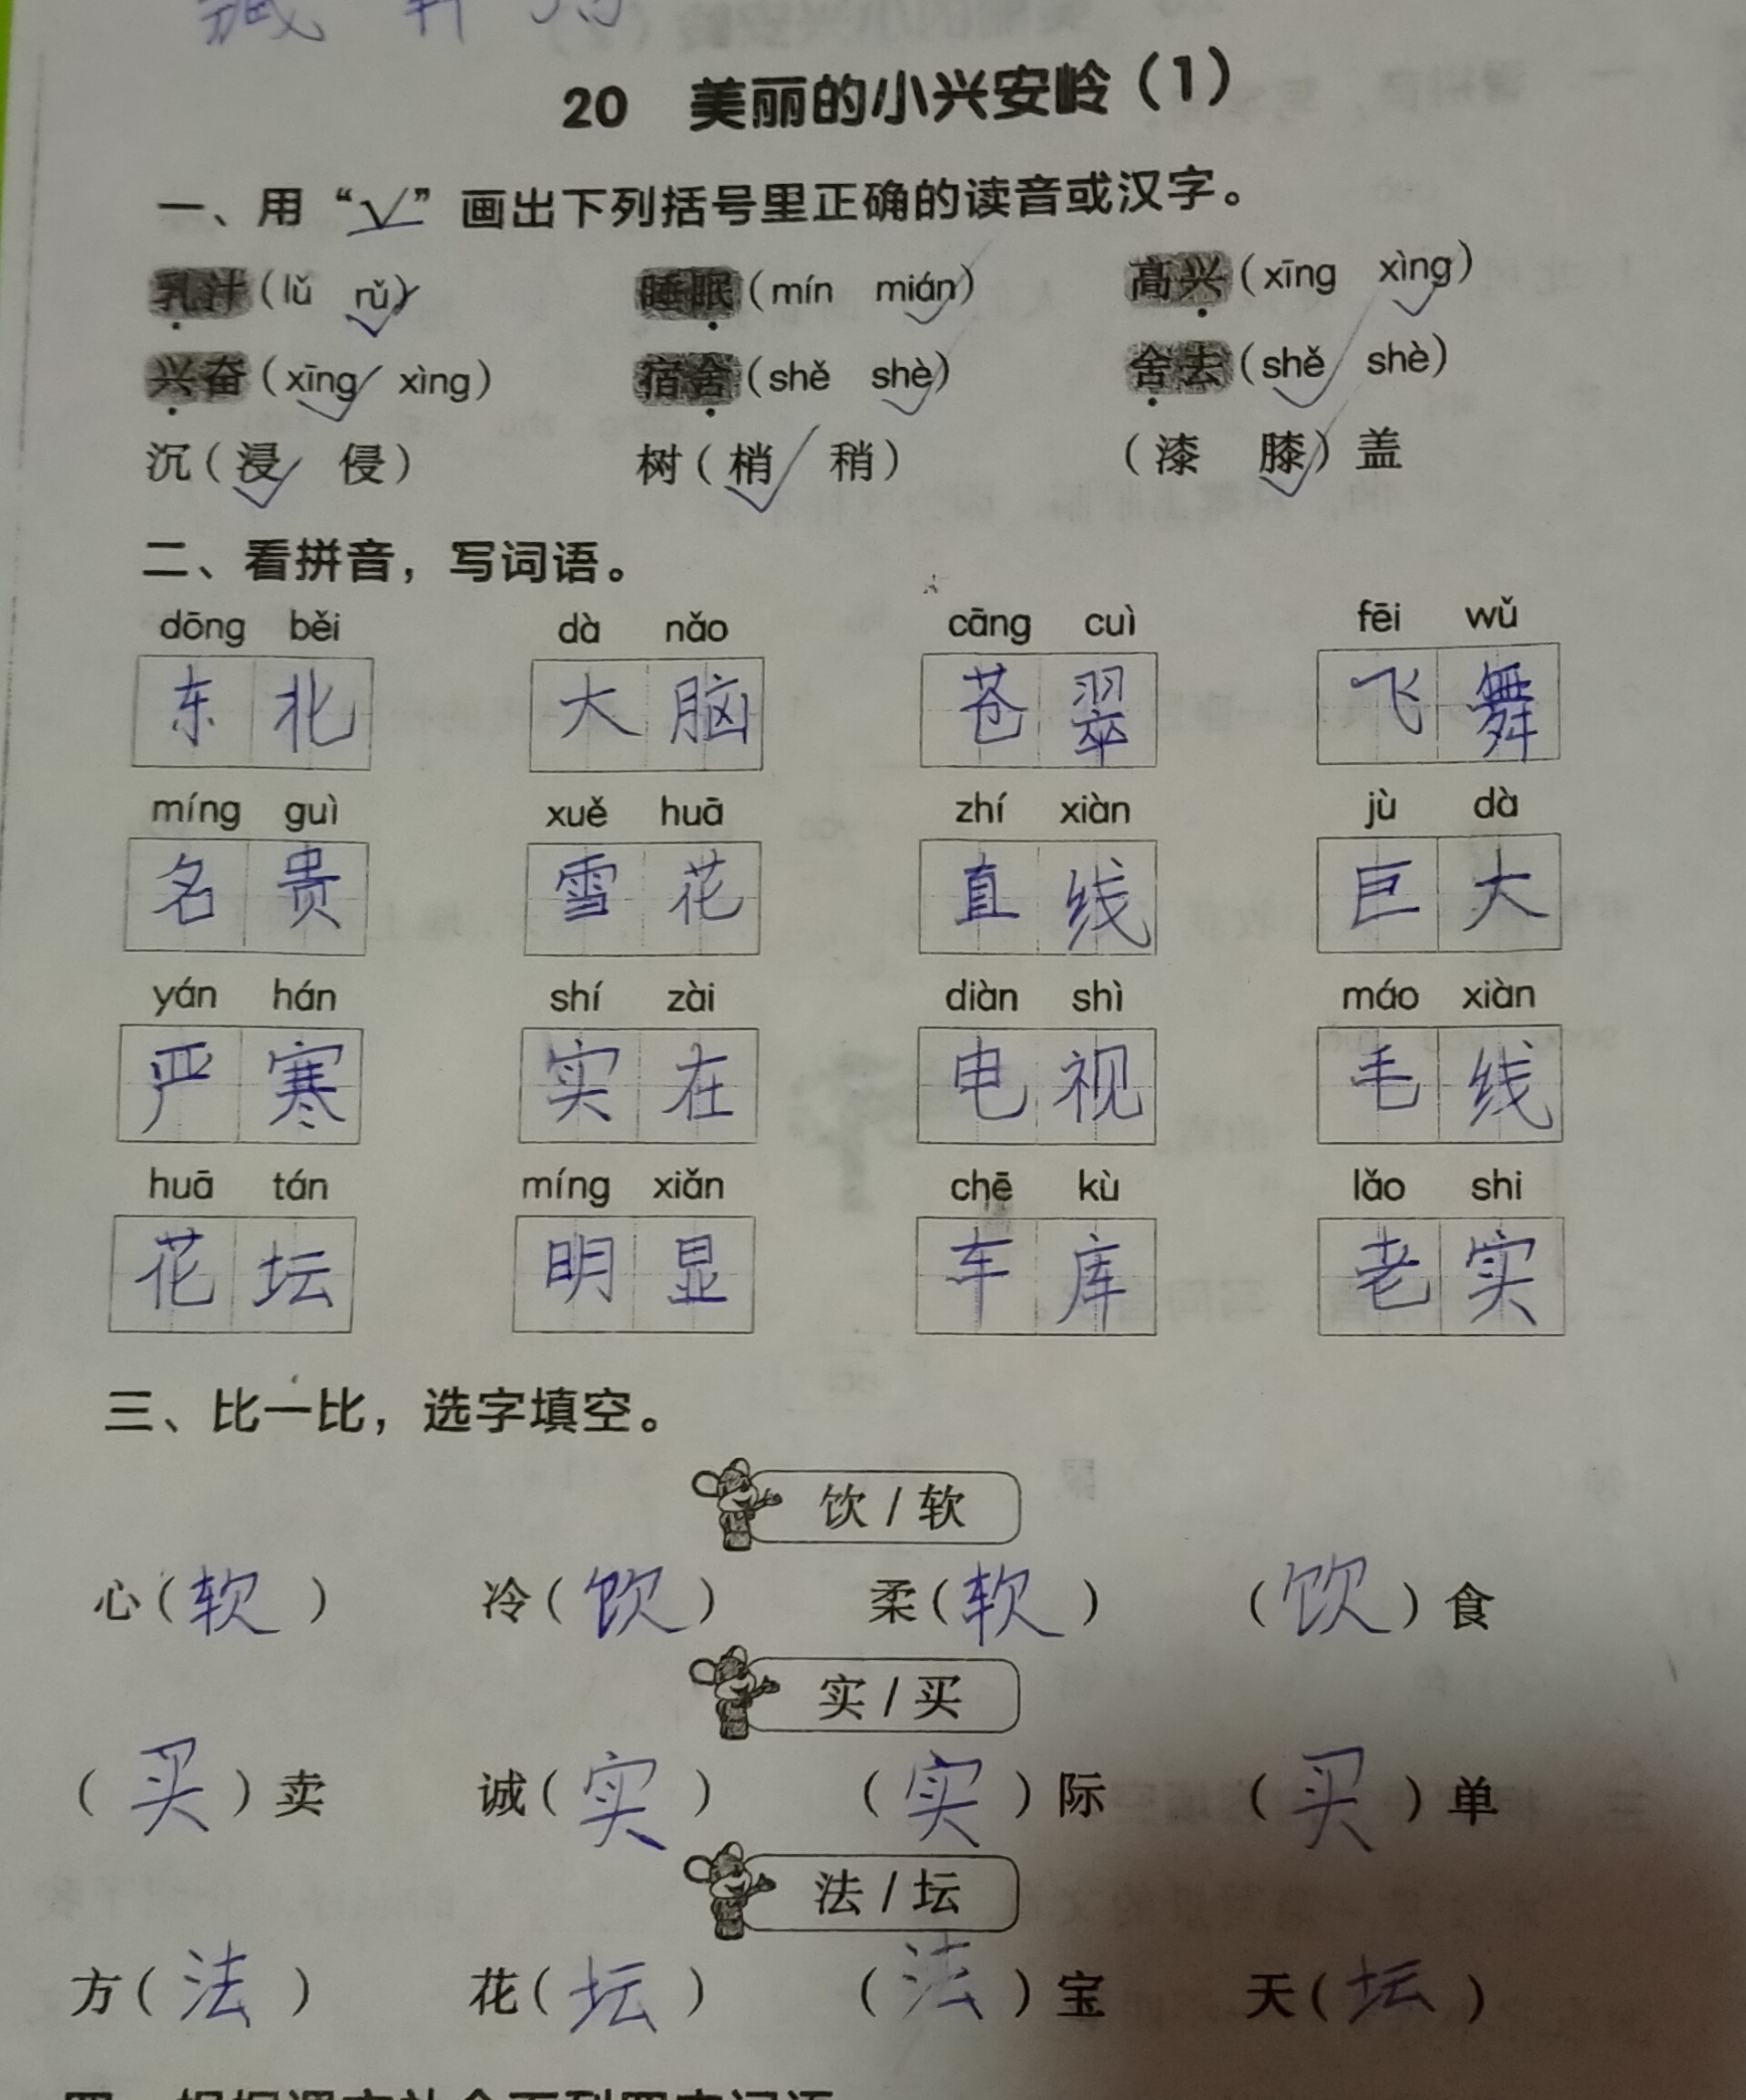 20 美丽的小兴安岭（1）
一、用“√”画出下列括号里正确的读音或汉字。
乳汁（lǔ rǔ√） 睡眠（mín mián√） 高兴（xīng xìng√）
兴奋（xīng√ xìng） 宿舍（shě shè√） 舍去（shě√ shè）
沉（浸√ 侵） 树（梢√ 稍） （漆 膝√）盖
二、看拼音，写词语。
dōng běi dà nǎo cāng cuì fēi wǔ
东北 大脑 苍翠 飞舞
míng guì xuě huā zhí xiàn jù dà
名贵 雪花 直线 巨大
yán hán shí zài diàn shì máo xiàn
严寒 实在 电视 毛线
huā tán míng xiǎn chē kù lǎo shi
花坛 明显 车库 老实
三、比一比，选字填空。
饮 / 软
心（软） 冷（饮） 柔（软） （饮）食
实 / 买
（买）卖 诚（实） （实）际 （买）单
法 / 坛
方（法） 花（坛） （法）宝 天（坛）